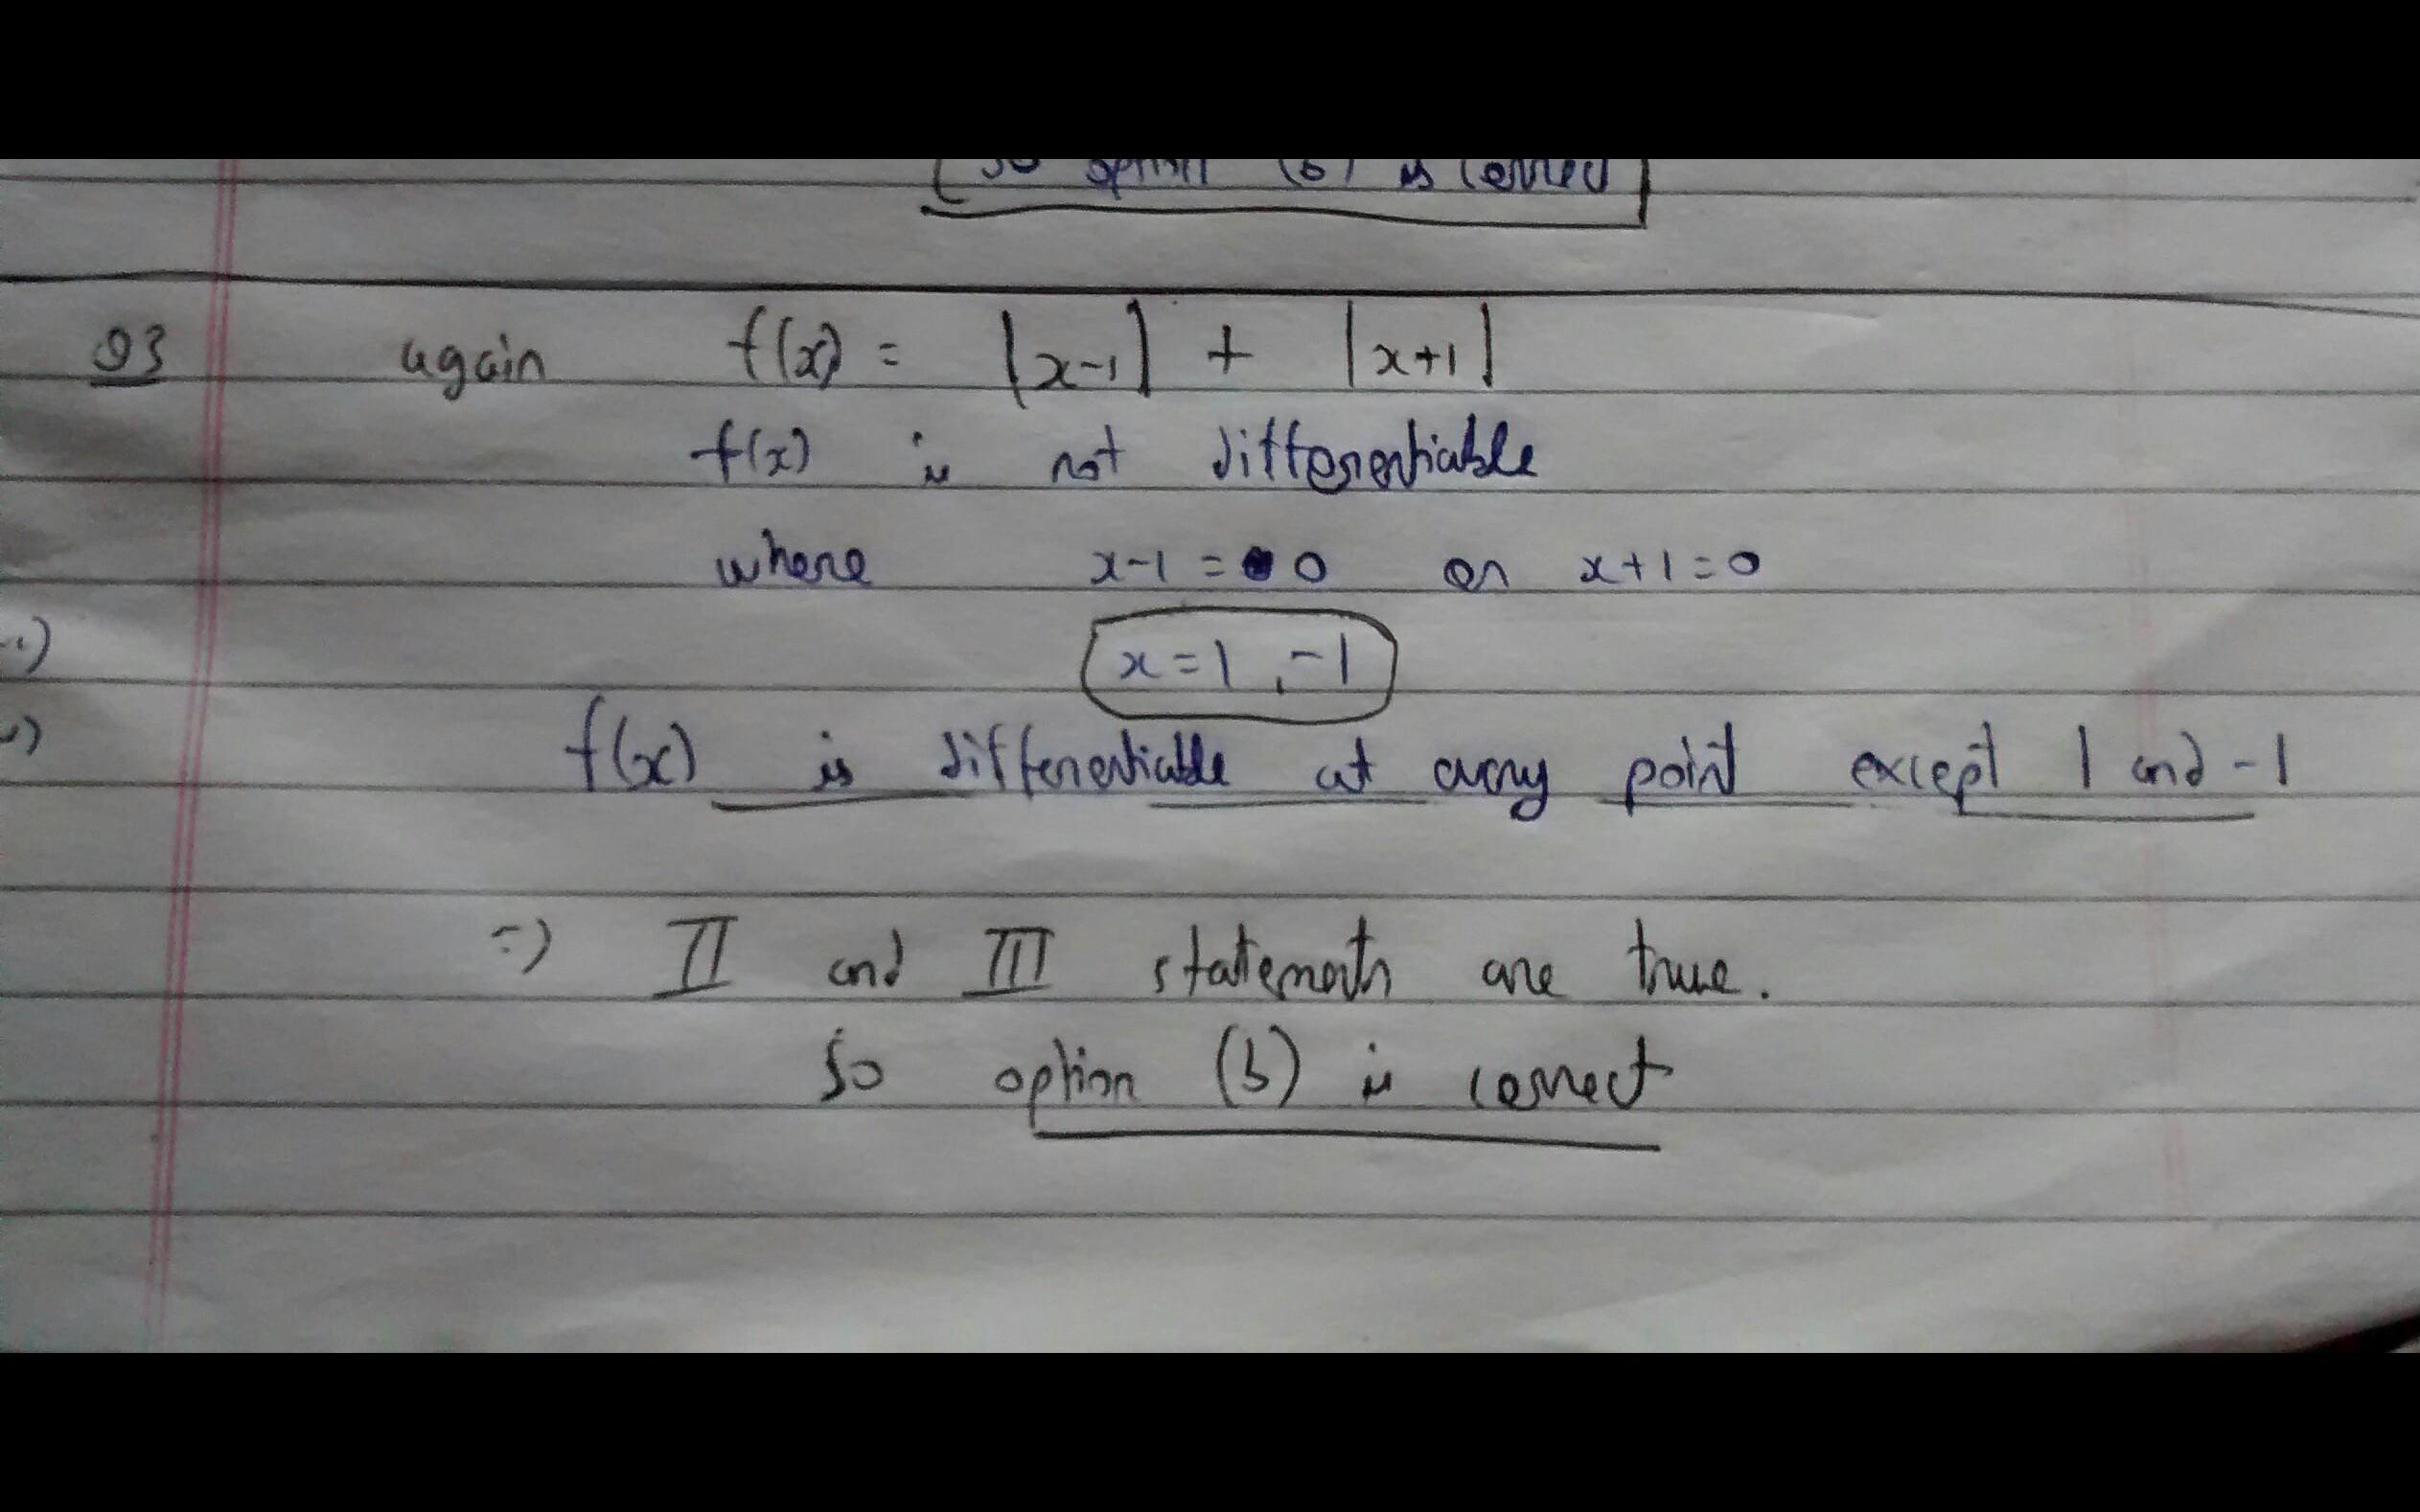 so option (b) is correct
Q3 again f(x) = |x-1| + |x+1|
f(x) is not differentiable
where x-1 = 0 or x+1=0
x=1, -1
f(x) is differentiable at every point except 1 and -1
=) II and III statements are true.
So option (b) is correct